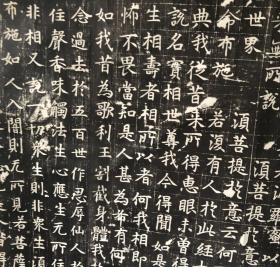 世界 須菩提於意云何
布施 若復有人於此經
典我從昔來所得慧眼未曾得
說名實相世尊我今得聞如是
生相壽者相所以者何我相即
怖不畏當知是人甚為希有何
如我昔為歌利王割截身體我
念過去於五百世作忍辱仙人於
住聲香味觸法生心應生无所住
非相又說一切眾生則非眾生須
布施如人入闇則无所見若菩薩